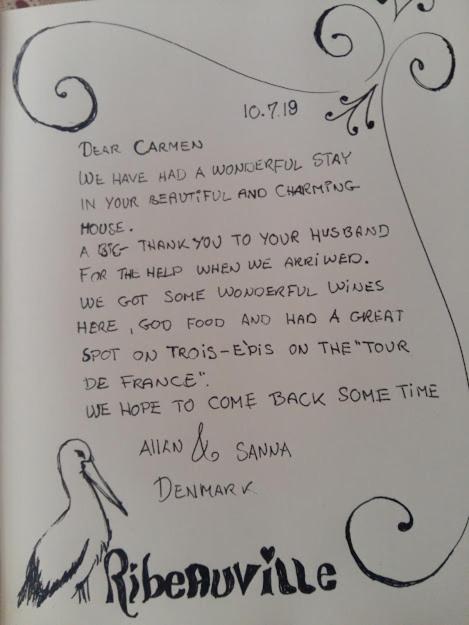 10.7.19
DEAR CARMEN
WE HAVE HAD A WONDERFUL STAY
IN YOUR BEAUTIFUL AND CHARMING
HOUSE.
A BIG THANK YOU TO YOUR HUSBAND
FOR THE HELP WHEN WE ARRIWED.
WE GOT SOME WONDERFUL WINES
HERE, GOD FOOD AND HAD A GREAT
SPOT ON TROIS-EPIS ON THE "TOUR
DE FRANCE".
WE HOPE TO COME BACK SOME TIME
Allan & SANNA
DENMARK
Ribeauville